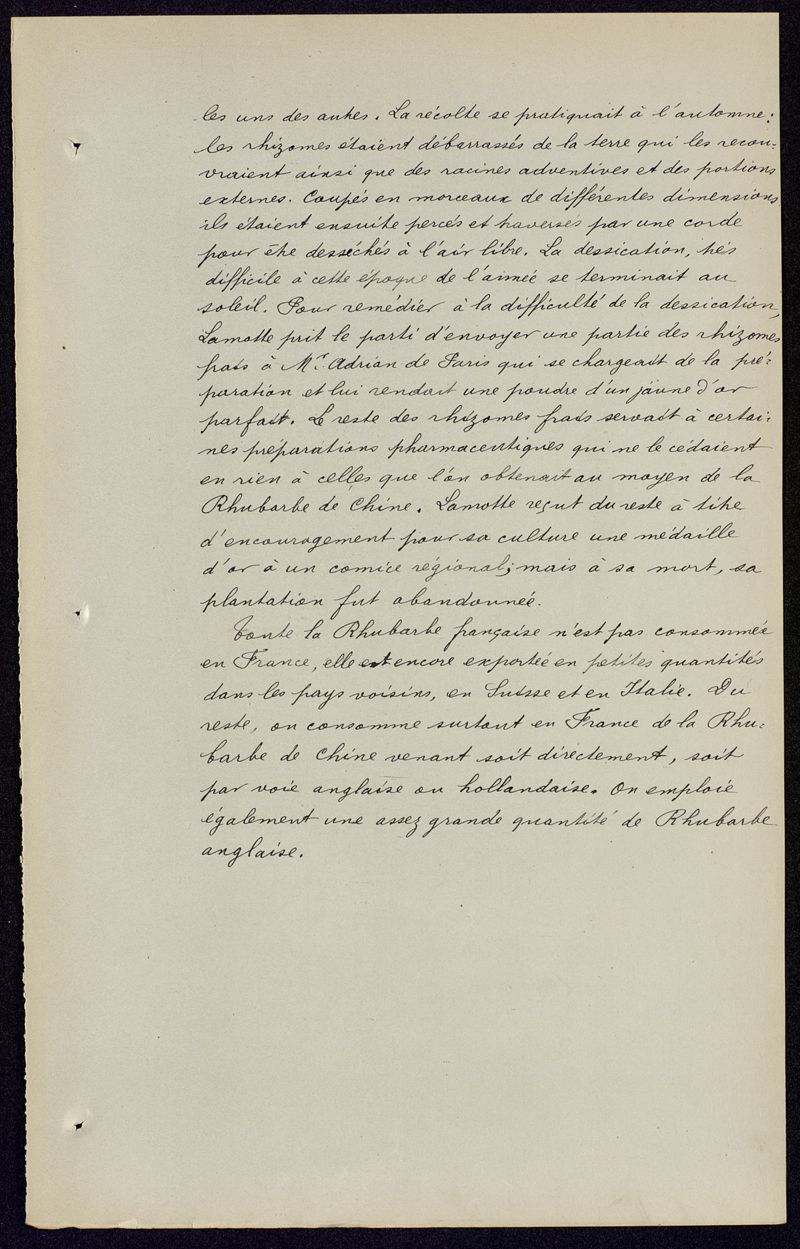 les uns des autres. La récolte se pratiquait à l'automne:
les rhizomes étaient débarrassés de la terre qui les recou-
vraient ainsi que des racines adventives et des portions
externes. Coupés en morceaux de différentes dimensions
ils étaient ensuite percés et traversés par une corde
pour être desséchés à l'air libre. La dessication, très
difficile à cette époque de l'année se terminait au
soleil. Pour remédier à la difficulté de la dessication,
Lamotte prit le parti d'envoyer une partie des rhizomes
frais à Mr. Adrian de Paris qui se chargeait de la pré-
paration et lui rendait une poudre d'un jaune d'or
parfait. Le reste des rhizomes frais servait à certai-
nes préparations pharmaceutiques qui ne le cédaient
en rien à celles que l'on obtenait au moyen de la
Rhubarbe de Chine. Lamotte reçut du reste à titre
d'encouragement pour sa culture une médaille
d'or à un comice régional; mais à sa mort, sa
plantation fut abandonnée.
Toute la Rhubarbe française n'est pas consommée
en France, elle est encore exportée en petites quantités
dans les pays voisins, en Suisse et en Italie. Du
reste, on consomme surtout en France de la Rhu-
barbe de Chine venant soit directement, soit
par voie anglaise ou hollandaise. On emploie
également une assez grande quantité de Rhubarbe
anglaise.